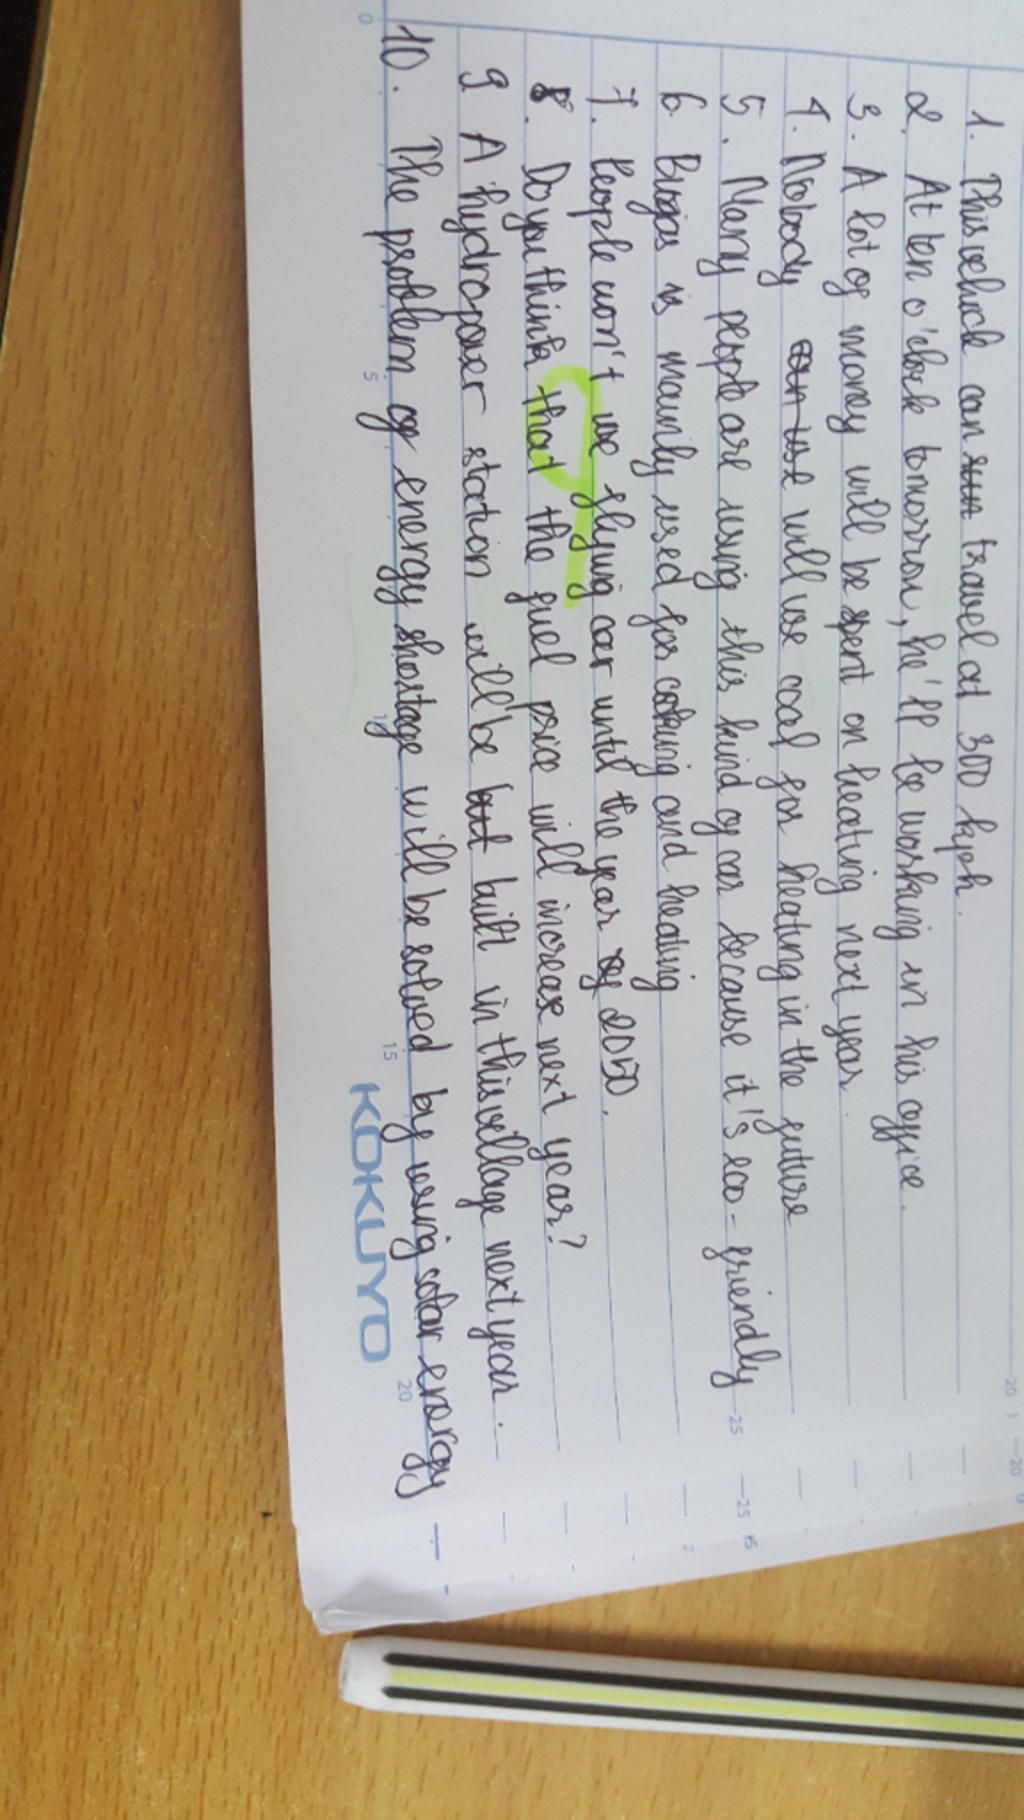 1. This vehicle can travel at 300 kph.
2. At ten o'clock tomorrow, he'll be working in his office.
3. A lot of money will be spent on heating next year.
4. Nobody will use coal for heating in the future
5. Many people are using this kind of car because it's eco-friendly
6 Biogas is mainly used for coking and heating
7. People won't use flying car until the year 2050.
8. Do you think that the fuel price will increase next year?
9 A hydropower station will be built in this village next year.
10. The problem of energy shortage will be solved by using solar energy
0
5
10
15
20
KOKUYO